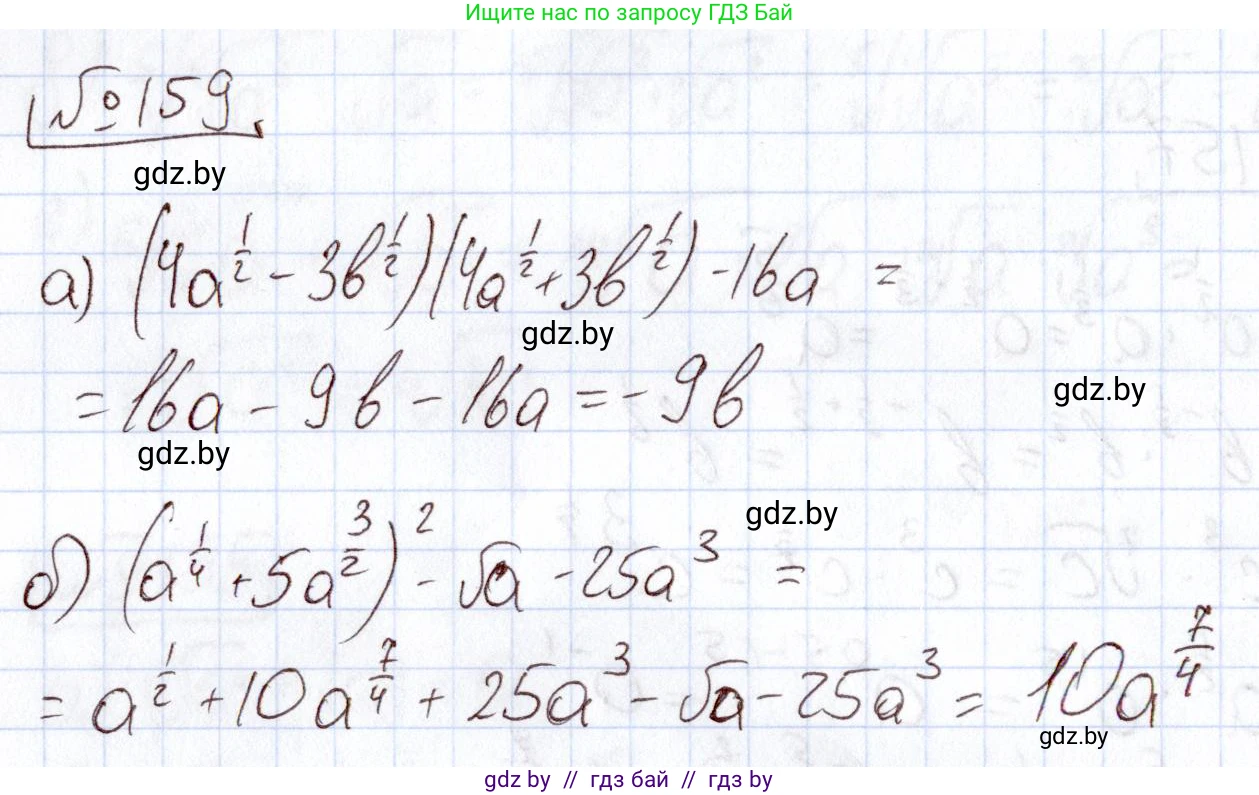 Ищите нас по запросу ГДЗ Бай
№159
gdz.by
а) (4a^{1/2} - 3b^{1/2})(4a^{1/2} + 3b^{1/2}) - 16a =
gdz.by
= 16a - 9b - 16a = - 9b
gdz.by
gdz.by
gdz.by
б) (a^{1/4} + 5a^{3/2})^2 - √a - 25a^3 =
= a^{1/2} + 10a^{7/4} + 25a^3 - √a - 25a^3 = 10a^{7/4}
gdz.by
gdz by // гдз бай // гдз by